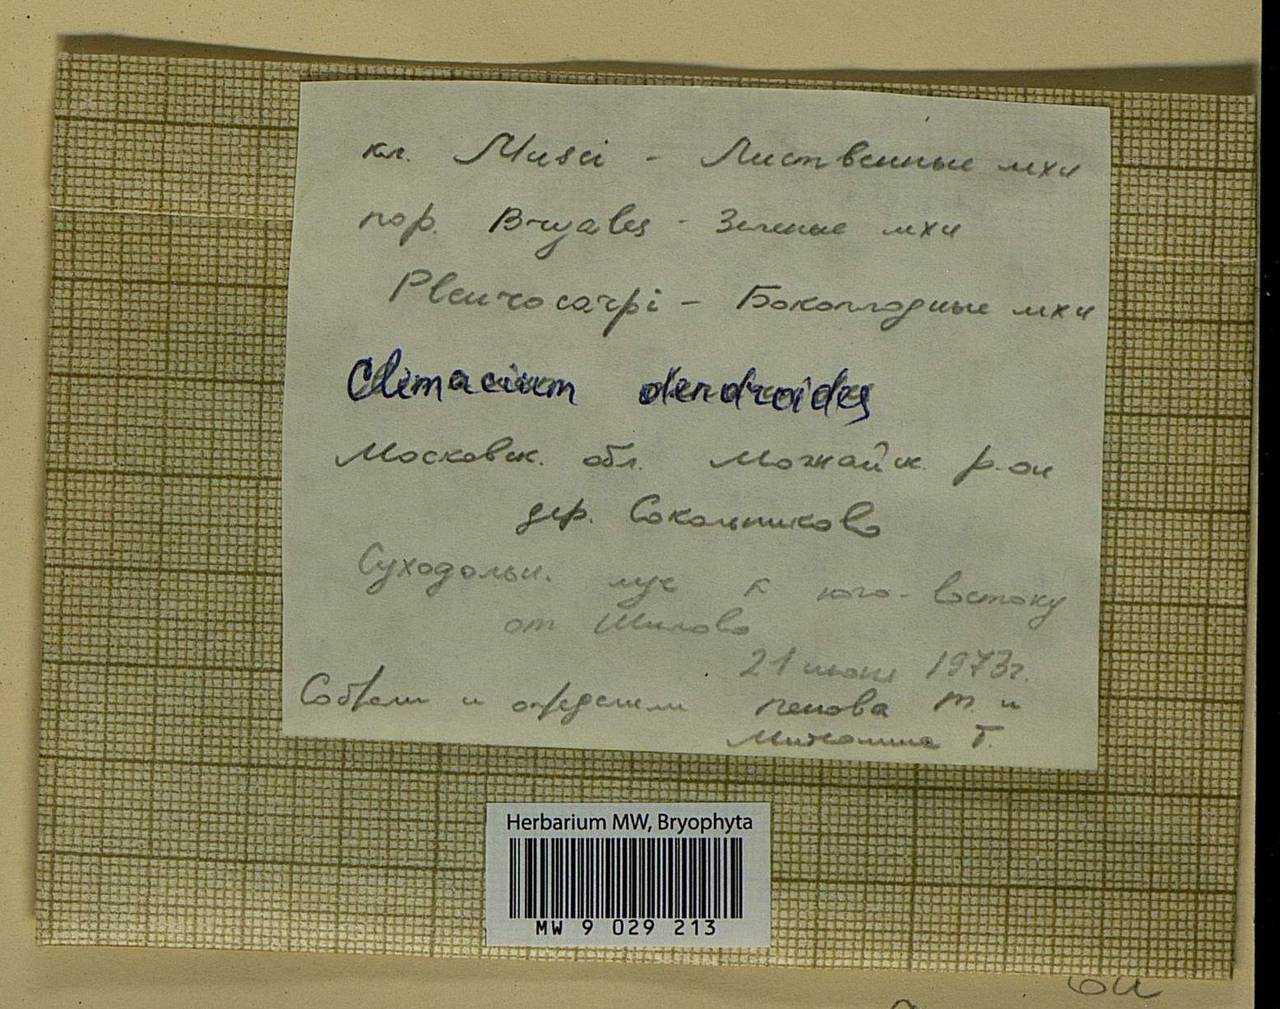 кл. Musci - Лиственные мхи
пор. Bryales - Зеленые мхи
Pleurocarpi - Бокоплодные мхи
Climacium dendroides
Московск. обл. Можайск. р-он
дер. Сокольниково
Суходольн. луг к юго-востоку
от Шилово
21 июня 1973г.
Собрали и определили Т. и
Т.
Herbarium MW, Bryophyta
MW 9 029 213